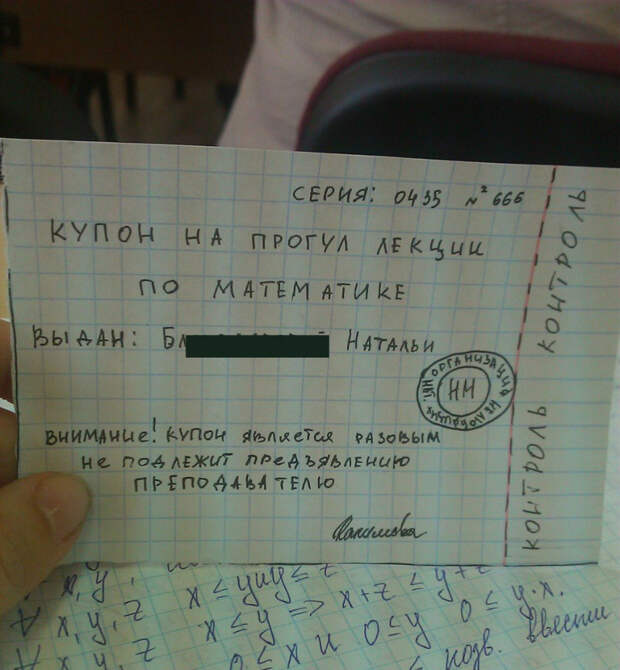 СЕРИЯ: 0435 №666
КУПОН НА ПРОГУЛ ЛЕКЦИИ
ПО МАТЕМАТИКЕ
ВЫДАН: Бл Натальи
НМ
ВНИМАНИЕ! КУПОН ЯВЛЯЕТСЯ РАЗОВЫМ
НЕ ПОДЛЕЖИТ ПРЕДЪЯВЛЕНИЮ
ПРЕПОДАВАТЕЛЮ
КОНТРОЛЬ КОНТРОЛЬ
x, y,
x ≤ y и y ≤ z
∀ x, y, z x ≤ y => x+z ≤ y+z
∀ x, y, z 0 ≤ x и 0 ≤ y 0 ≤ y·x.